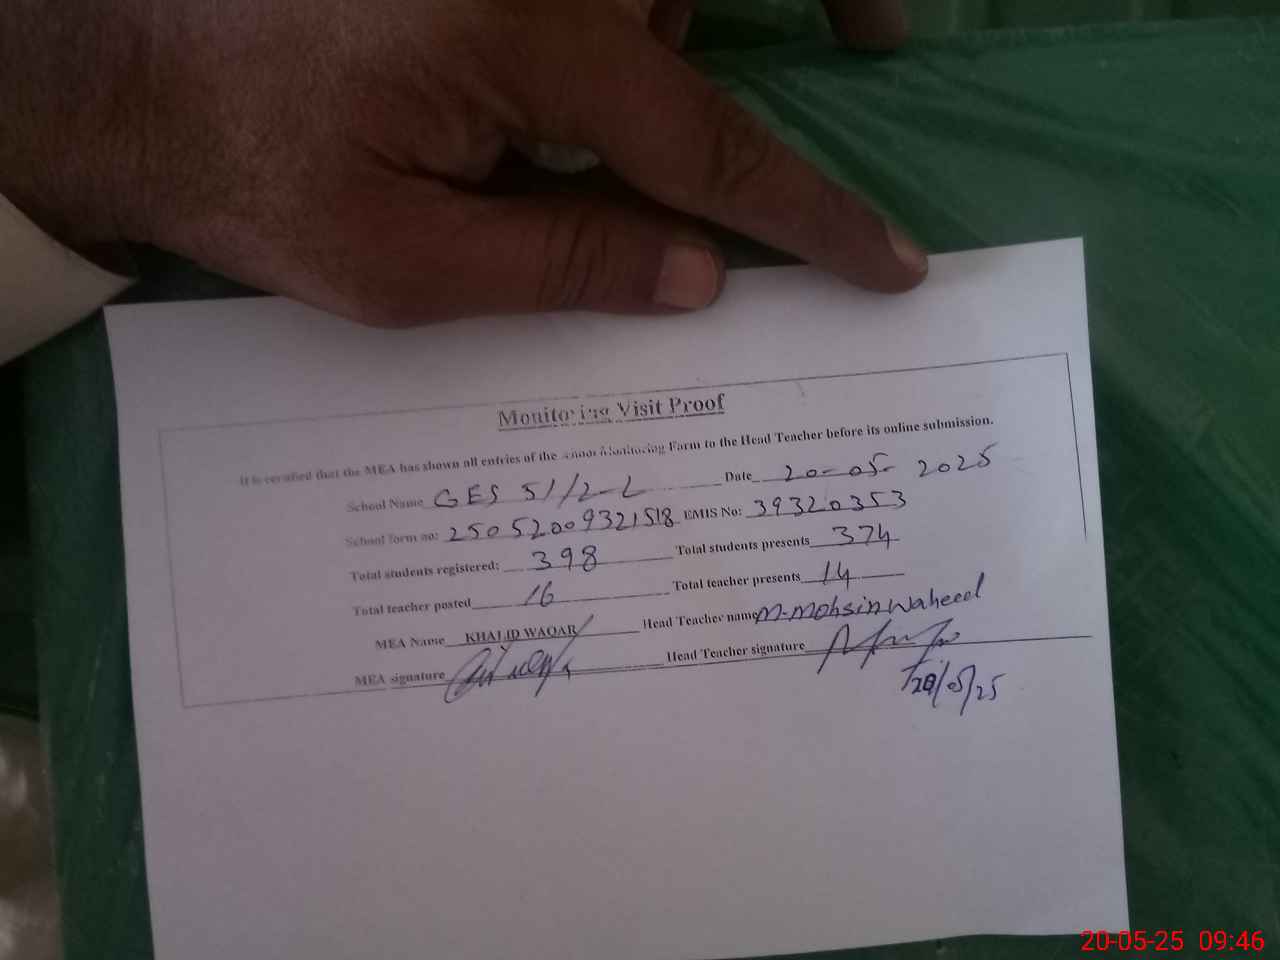 Monitoring Visit Proof
It is certified that the MEA has shown all entries of the School Monitoring Form to the Head Teacher before its online submission.
School Name GES 51/2-L Date 20-05-2025
School form no: 25052009321518 EMIS No: 39320353
Total students registered: 398 Total students presents 374
Total teacher posted 16 Total teacher presents 14
MEA Name KHALID WAQAR Head Teacher name M-Mohsin Waheed
MEA signature Head Teacher signature
20/05/25
20-05-25 09:46